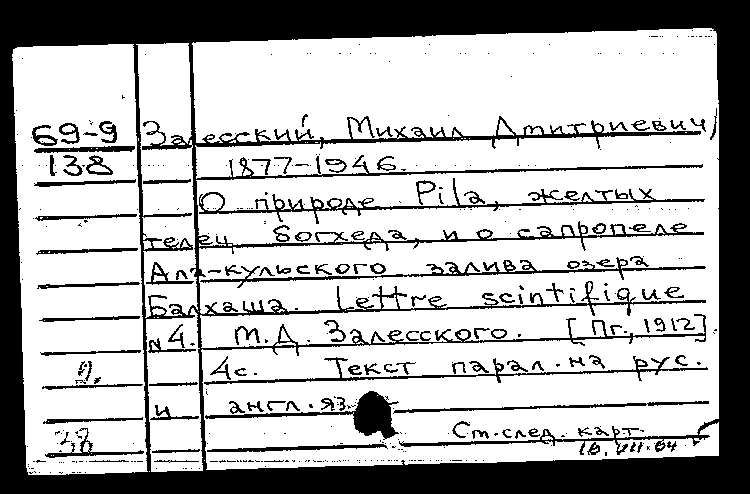 69-9 Залесский, Михаил Дмитриевич,
138 1877-1946.
О природе Pila, желтых
телец богхеда, и о сапропеле
Ала-кульского залива озера
Балхаша. Lettre scintifique
n 4. М.Д. Залесского. [Пг., 1912].
4с. Текст парал. на рус.
и англ. яз
38 См. след. карт.